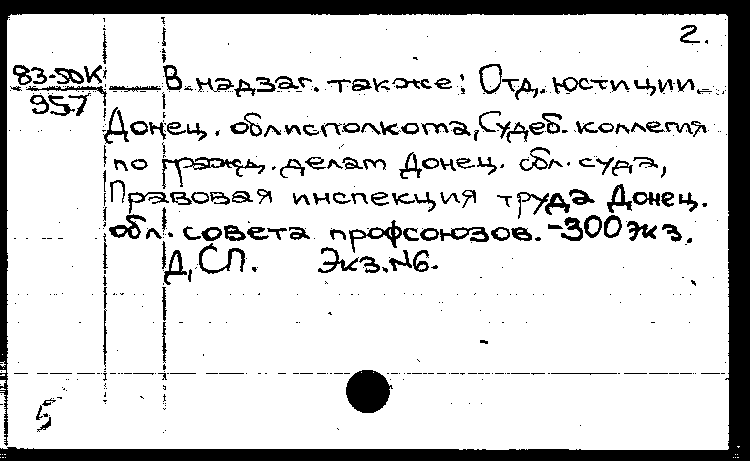 2.
83-50К
957
В надзаг. также: Отд. юстиции
Донец. облисполкома, Судеб. коллегия
по гражд. делам Донец. обл. суда,
Правовая инспекция труда Донец.
обл. совета профсоюзов. -300 экз.
Д,СП. Экз.N6.
5